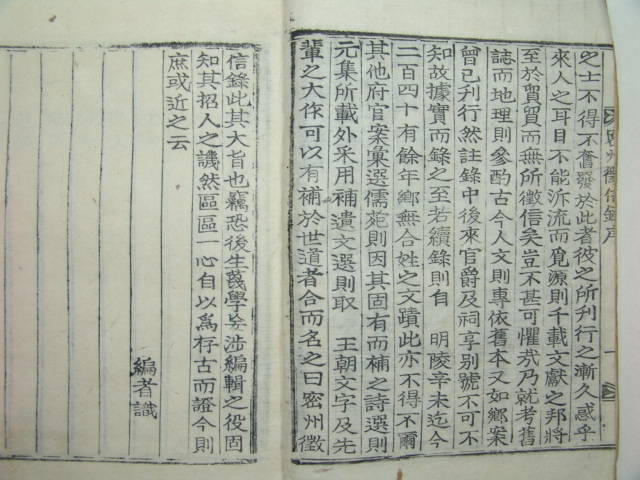 密州徵信錄序
一
之士不得不奮發於此者彼之所刊行之漸久惑乎
來人之耳目不能泝流而覓源則千載文獻之邦將
至於貿貿而無所徵信矣豈不甚可懼哉乃就考舊
誌而地理則參酌古今人文則專依舊本又如鄉案
曾已刊行然註錄中後來官爵及祠享別號不可不
知故據實而錄之至若續錄則自 明陵辛未迄今
二百四十有餘年鄉無合姓之文蹟此亦不得不爾
其他府官案彙選儒苑則因其固有而補之詩選則
元集所載外采用補遺文選則取 王朝文字及先
輩之大作可以有補於世道者合而名之曰密州徵
信錄此其大旨也竊恐後生蔑學妄涉編輯之役固
知其招人之譏然區區一心自以爲存古而證今則
庶或近之云
編者識